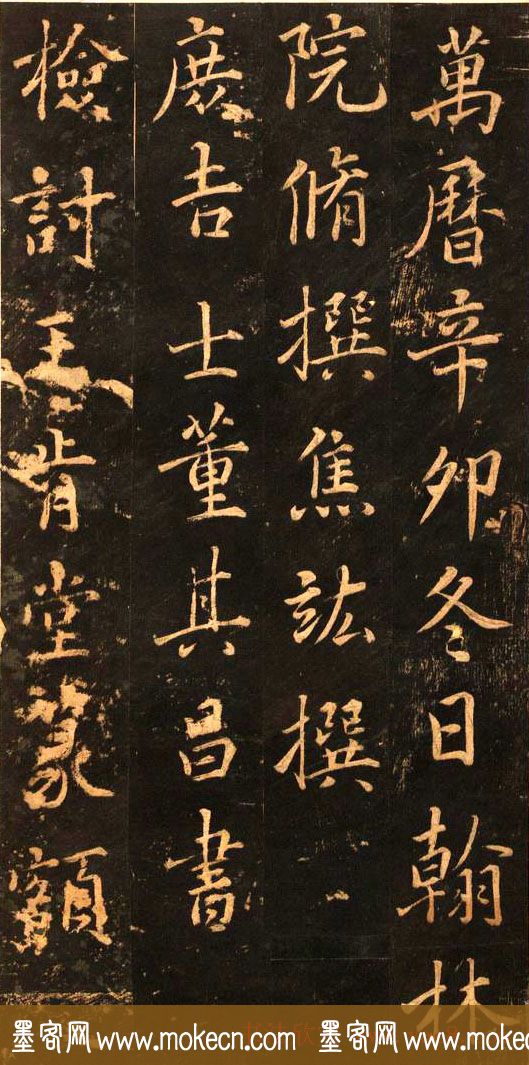 萬曆辛卯冬日翰林
院脩撰焦竑撰
庶吉士董其昌書
檢討王肯堂篆額
墨客网 www.mokecn.com 墨客网 www.mokecn.com